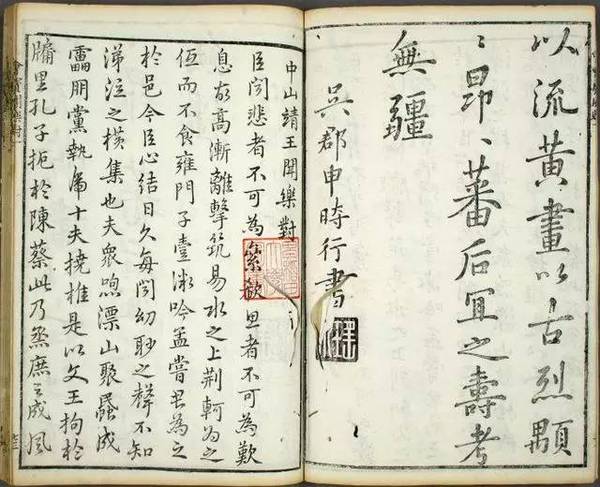 以流黃畫以古烈顒
〻昂〻蕃后冝之壽考
無疆
吳郡申時行書
中山靖王聞樂對
臣聞悲者不可為絫欷思者不可為歎
息故高漸離擊筑易水之上荊軻為之
低而不食雍門子壹微吟孟嘗君為之
於邑今臣心結日久每聞幼眇之聲不知
涕泣之橫集也夫眾喣漂山聚蟁成
靁朋黨執虎十夫橈椎是以文王拘於
牖里孔子阨於陳蔡此乃烝庶之成風